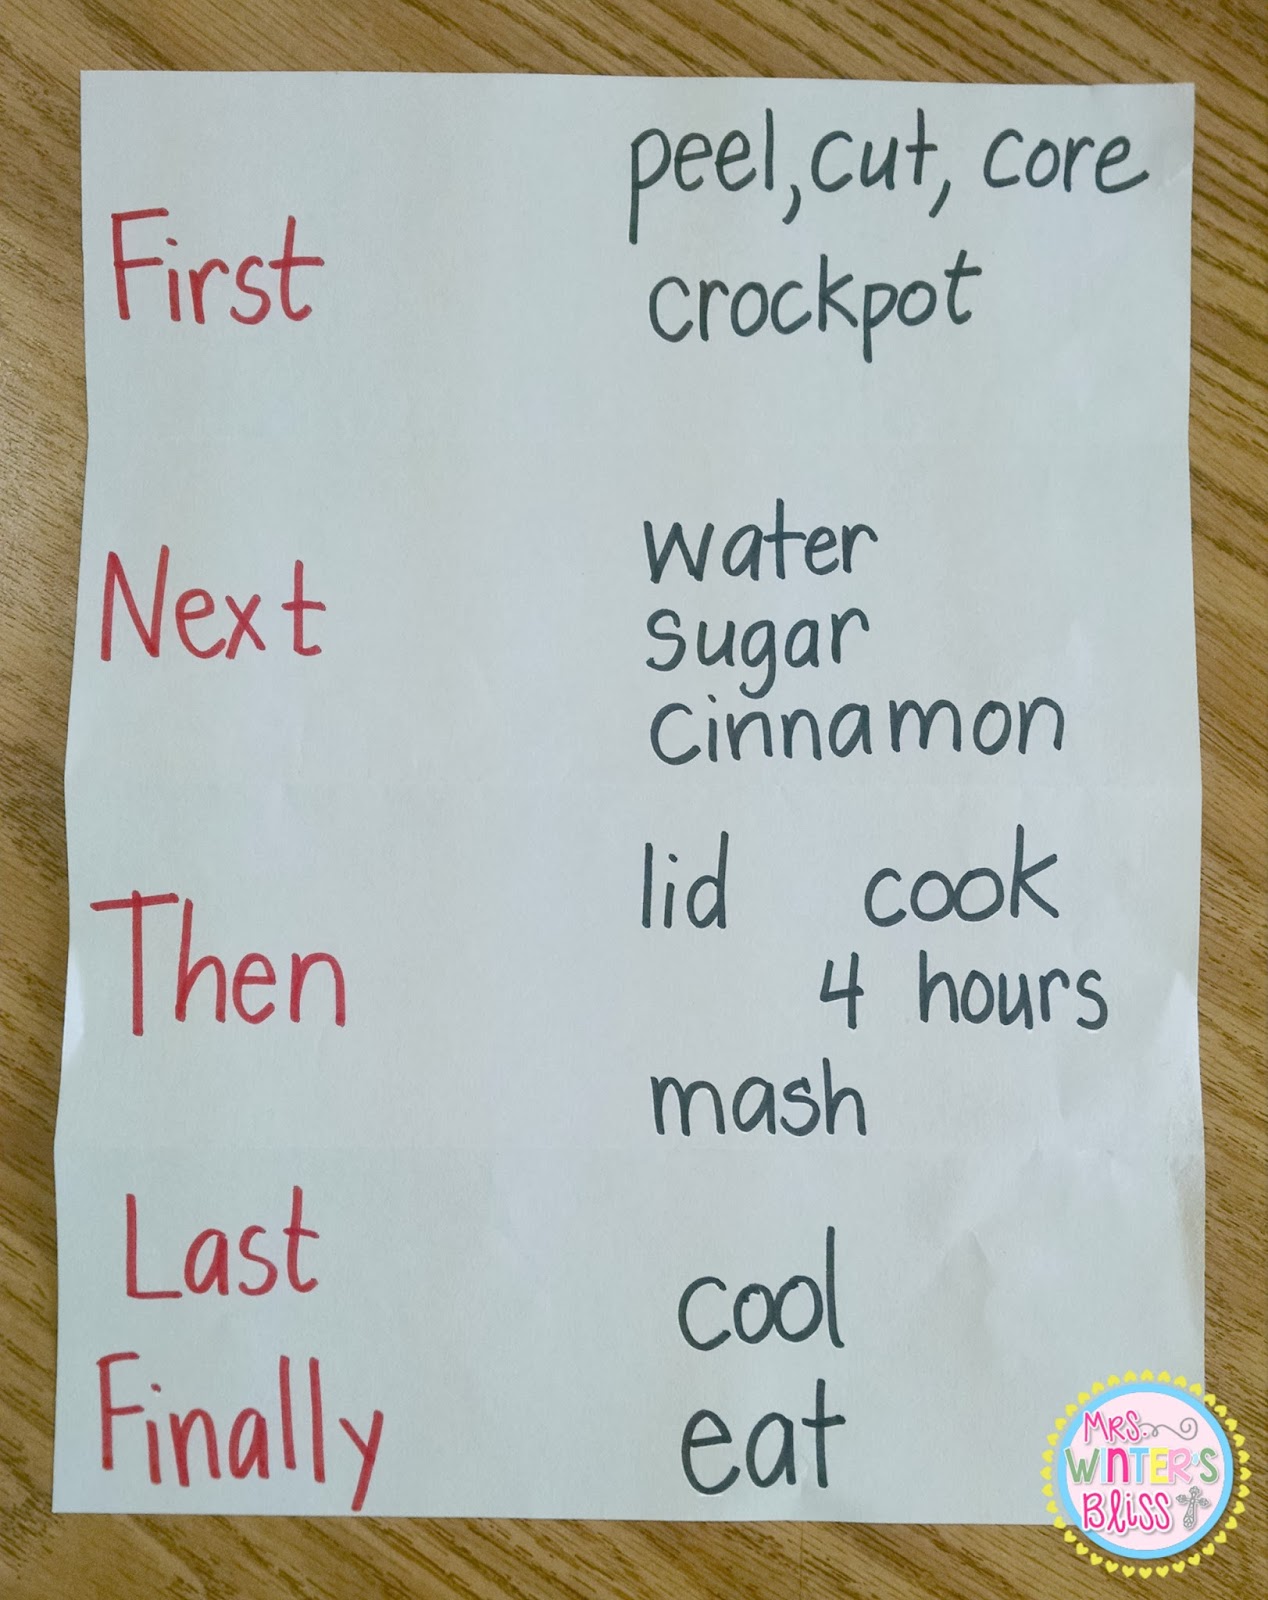 peel, cut, core
First
crockpot
water
Next
sugar
cinnamon
lid cook
Then
4 hours
mash
Last
cool
Finally
eat
Mrs.
Winter's
Bliss